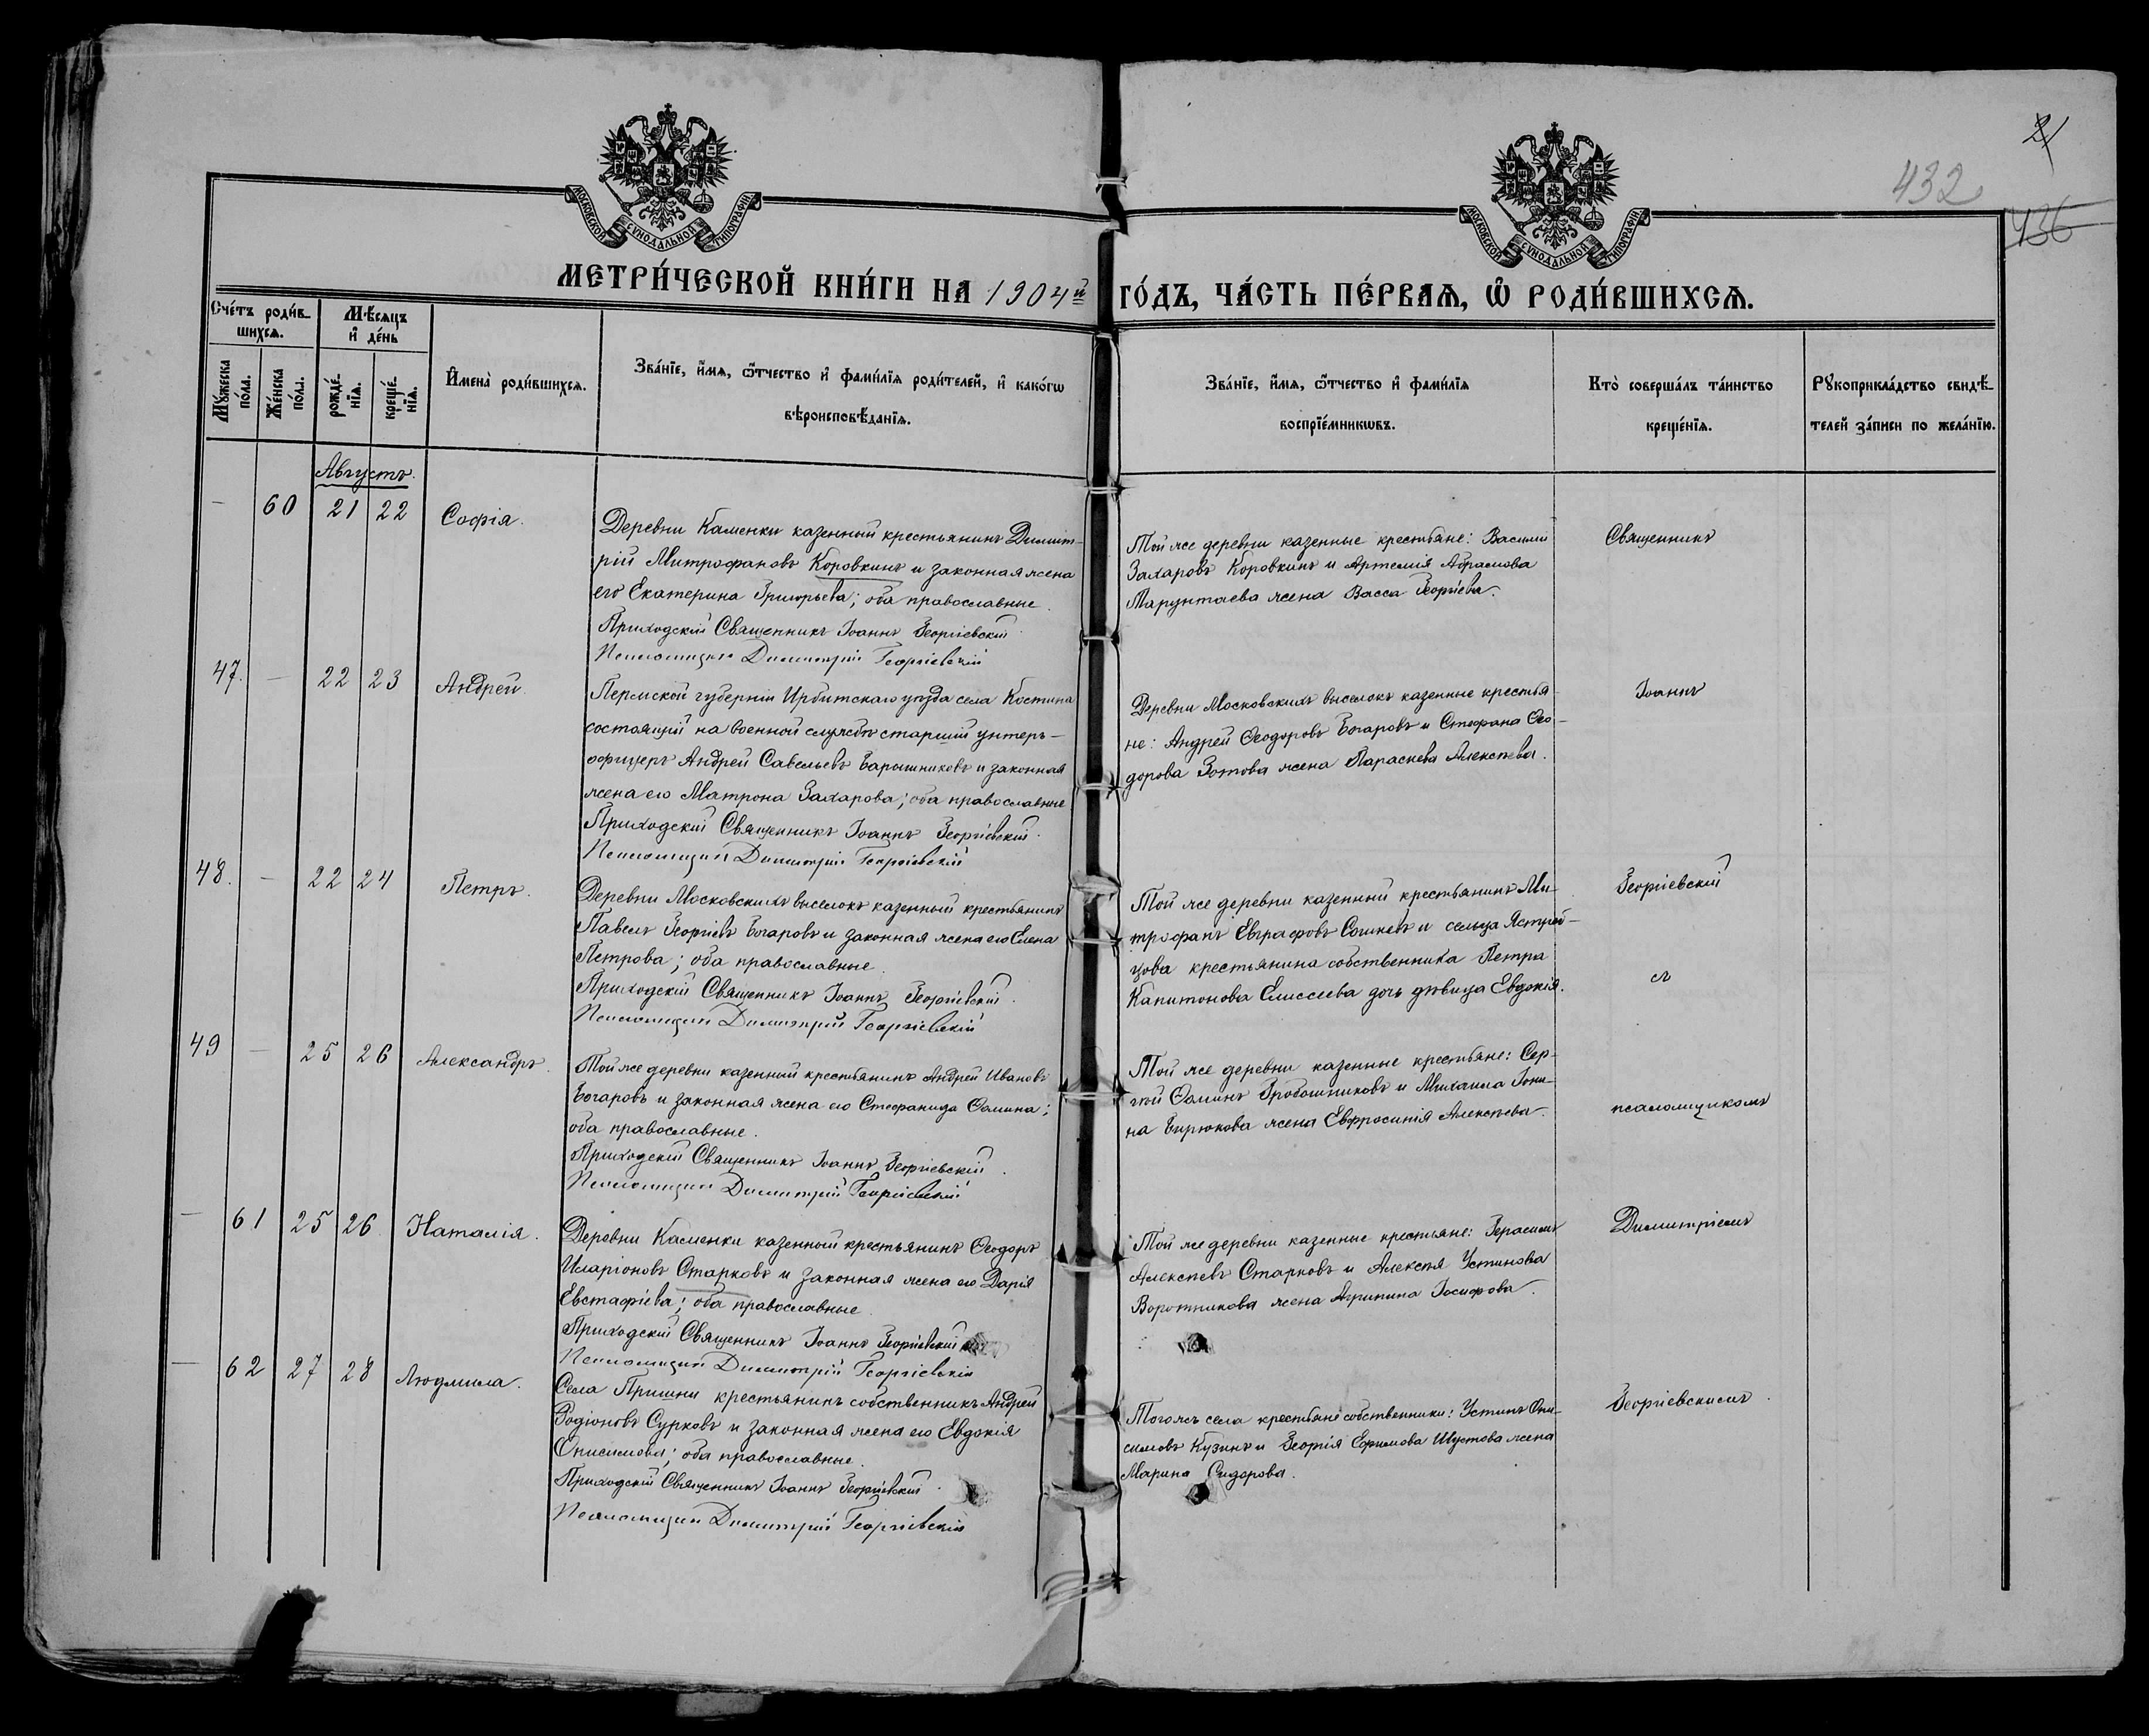 21
432
436
МОСКОВСКОЙ СѴНОДАЛЬНОЙ ТИПОГРАФІИ
МОСКОВСКОЙ СѴНОДАЛЬНОЙ ТИПОГРАФІИ
МЕТРИ́ЧЕСКОЙ КНИ́ГИ НА 1904й ГО́ДЪ, ЧА́СТЬ ПЕ́РВАѦ, Ѡ҆ РОДИ́ВШИХСѦ.
Сче́тъ роди́в-
шихсѧ.
Мѣ́сѧцъ
и҆ де́нь
Мꙋ́жеска
по́ла.
Же́нска
по́ла.
рожде́-
нїѧ.
креще́-
нїѧ.
И҆мена̀ роди́вшихсѧ.
Зва́нїе, и҆́мѧ, ѻ҆́тчество и҆ фами́лїѧ роди́телей, и҆ како́гѡ
вѣроисповѣ́данїѧ.
Зва́нїе, и҆́мѧ, ѻ҆́тчество и҆ фами́лїѧ
воспрїе́мникѡвъ.
Кто̀ соверша́лъ та́инство
креще́нїѧ.
Рꙋкоприкла́дство свидѣ́-
телей за́писи по жела́нїю.
Августъ.
— 60 21 22 Софія.
Деревни Каменки казенный крестьянинъ Димит-
рій Митрофановъ Коровкинъ и законная жена
его Екатерина Григорьева; оба православные.
Приходскій Священникъ Іоаннъ Георгіевскій.
Псаломщикъ Димитрій Георгіевскій
Той же деревни казенные крестьяне: Василій
Захаровъ Коровкинъ и Артемія Абрамова
Тарунтаева жена Васса Георгіева.
Священникъ
47. — 22 23 Андрей.
Пермской губерніи Ирбитскаго уѣзда села Костина
состоящій на военной службѣ старшій унтеръ-
офицеръ Андрей Савельевъ Барышниковъ и законная
жена его Матрона Захарова; оба православные
Приходскій Священникъ Іоаннъ Георгіевскій.
Псаломщикъ Димитрій Георгіевскій
Деревни Московскихъ выселокъ казенные крестья-
не: Андрей Ѳеодоровъ Богаровъ и Стефана Ѳео-
дорова Зотова жена Параскева Алексѣева.
Іоаннъ
48. — 22 24 Петръ.
Деревни Московскихъ выселокъ казенный крестьянинъ
Павелъ Георгіевъ Богаровъ и законная жена его Елена
Петрова; оба православные.
Приходскій Священникъ Іоаннъ Георгіевскій.
Псаломщикъ Димитрій Георгіевскій
Той же деревни казенный крестьянинъ Ми-
трофанъ Евграфовъ и сельца Ястреб-
цова крестьянина собственника Петра
Капитонова Елисеева дочь дѣвица Евдокія.
Георгіевскій
съ
49 — 25 26 Александръ.
Той же деревни казенный крестьянинъ Андрей Ивановъ
Богаровъ и законная жена его Стефанида Ѳомина;
оба православные.
Приходскій Священникъ Іоаннъ Георгіевскій.
Псаломщикъ Димитрій Георгіевскій
Той же деревни казенные крестьяне: Сер-
гѣй Ѳоминъ Гробошниковъ и Михаила Іони-
на Бирюкова жена Евфросинія Алексѣева.
псаломщикомъ
— 61 25 26. Наталія.
Деревни Каменки казенный крестьянинъ Ѳеодоръ
Иларіоновъ Старковъ и законная жена его Дарія
Евстафіева; оба православные.
Приходскій Священникъ Іоаннъ Георгіевскій
Псаломщикъ Димитрій Георгіевскій
Той же деревни казенные крестьяне: Герасимъ
Алексѣевъ Старковъ и Алексѣя Устинова
Воротникова жена Агрипина Іосифова.
Димитріемъ
— 62 27 28 Людмила.
Села Пришни крестьянинъ собственникъ Андрей
Родіоновъ Сурковъ и законная жена его Евдокія
Онисимова; оба православные.
Приходскій Священникъ Іоаннъ Георгіевскій.
Псаломщикъ Димитрій Георгіевскій
Тогожъ села крестьяне собственники: Устинъ Они-
симовъ Кузинъ и Георгія Ефимова Шустова жена
Марина Сидорова.
Георгіевскимъ.